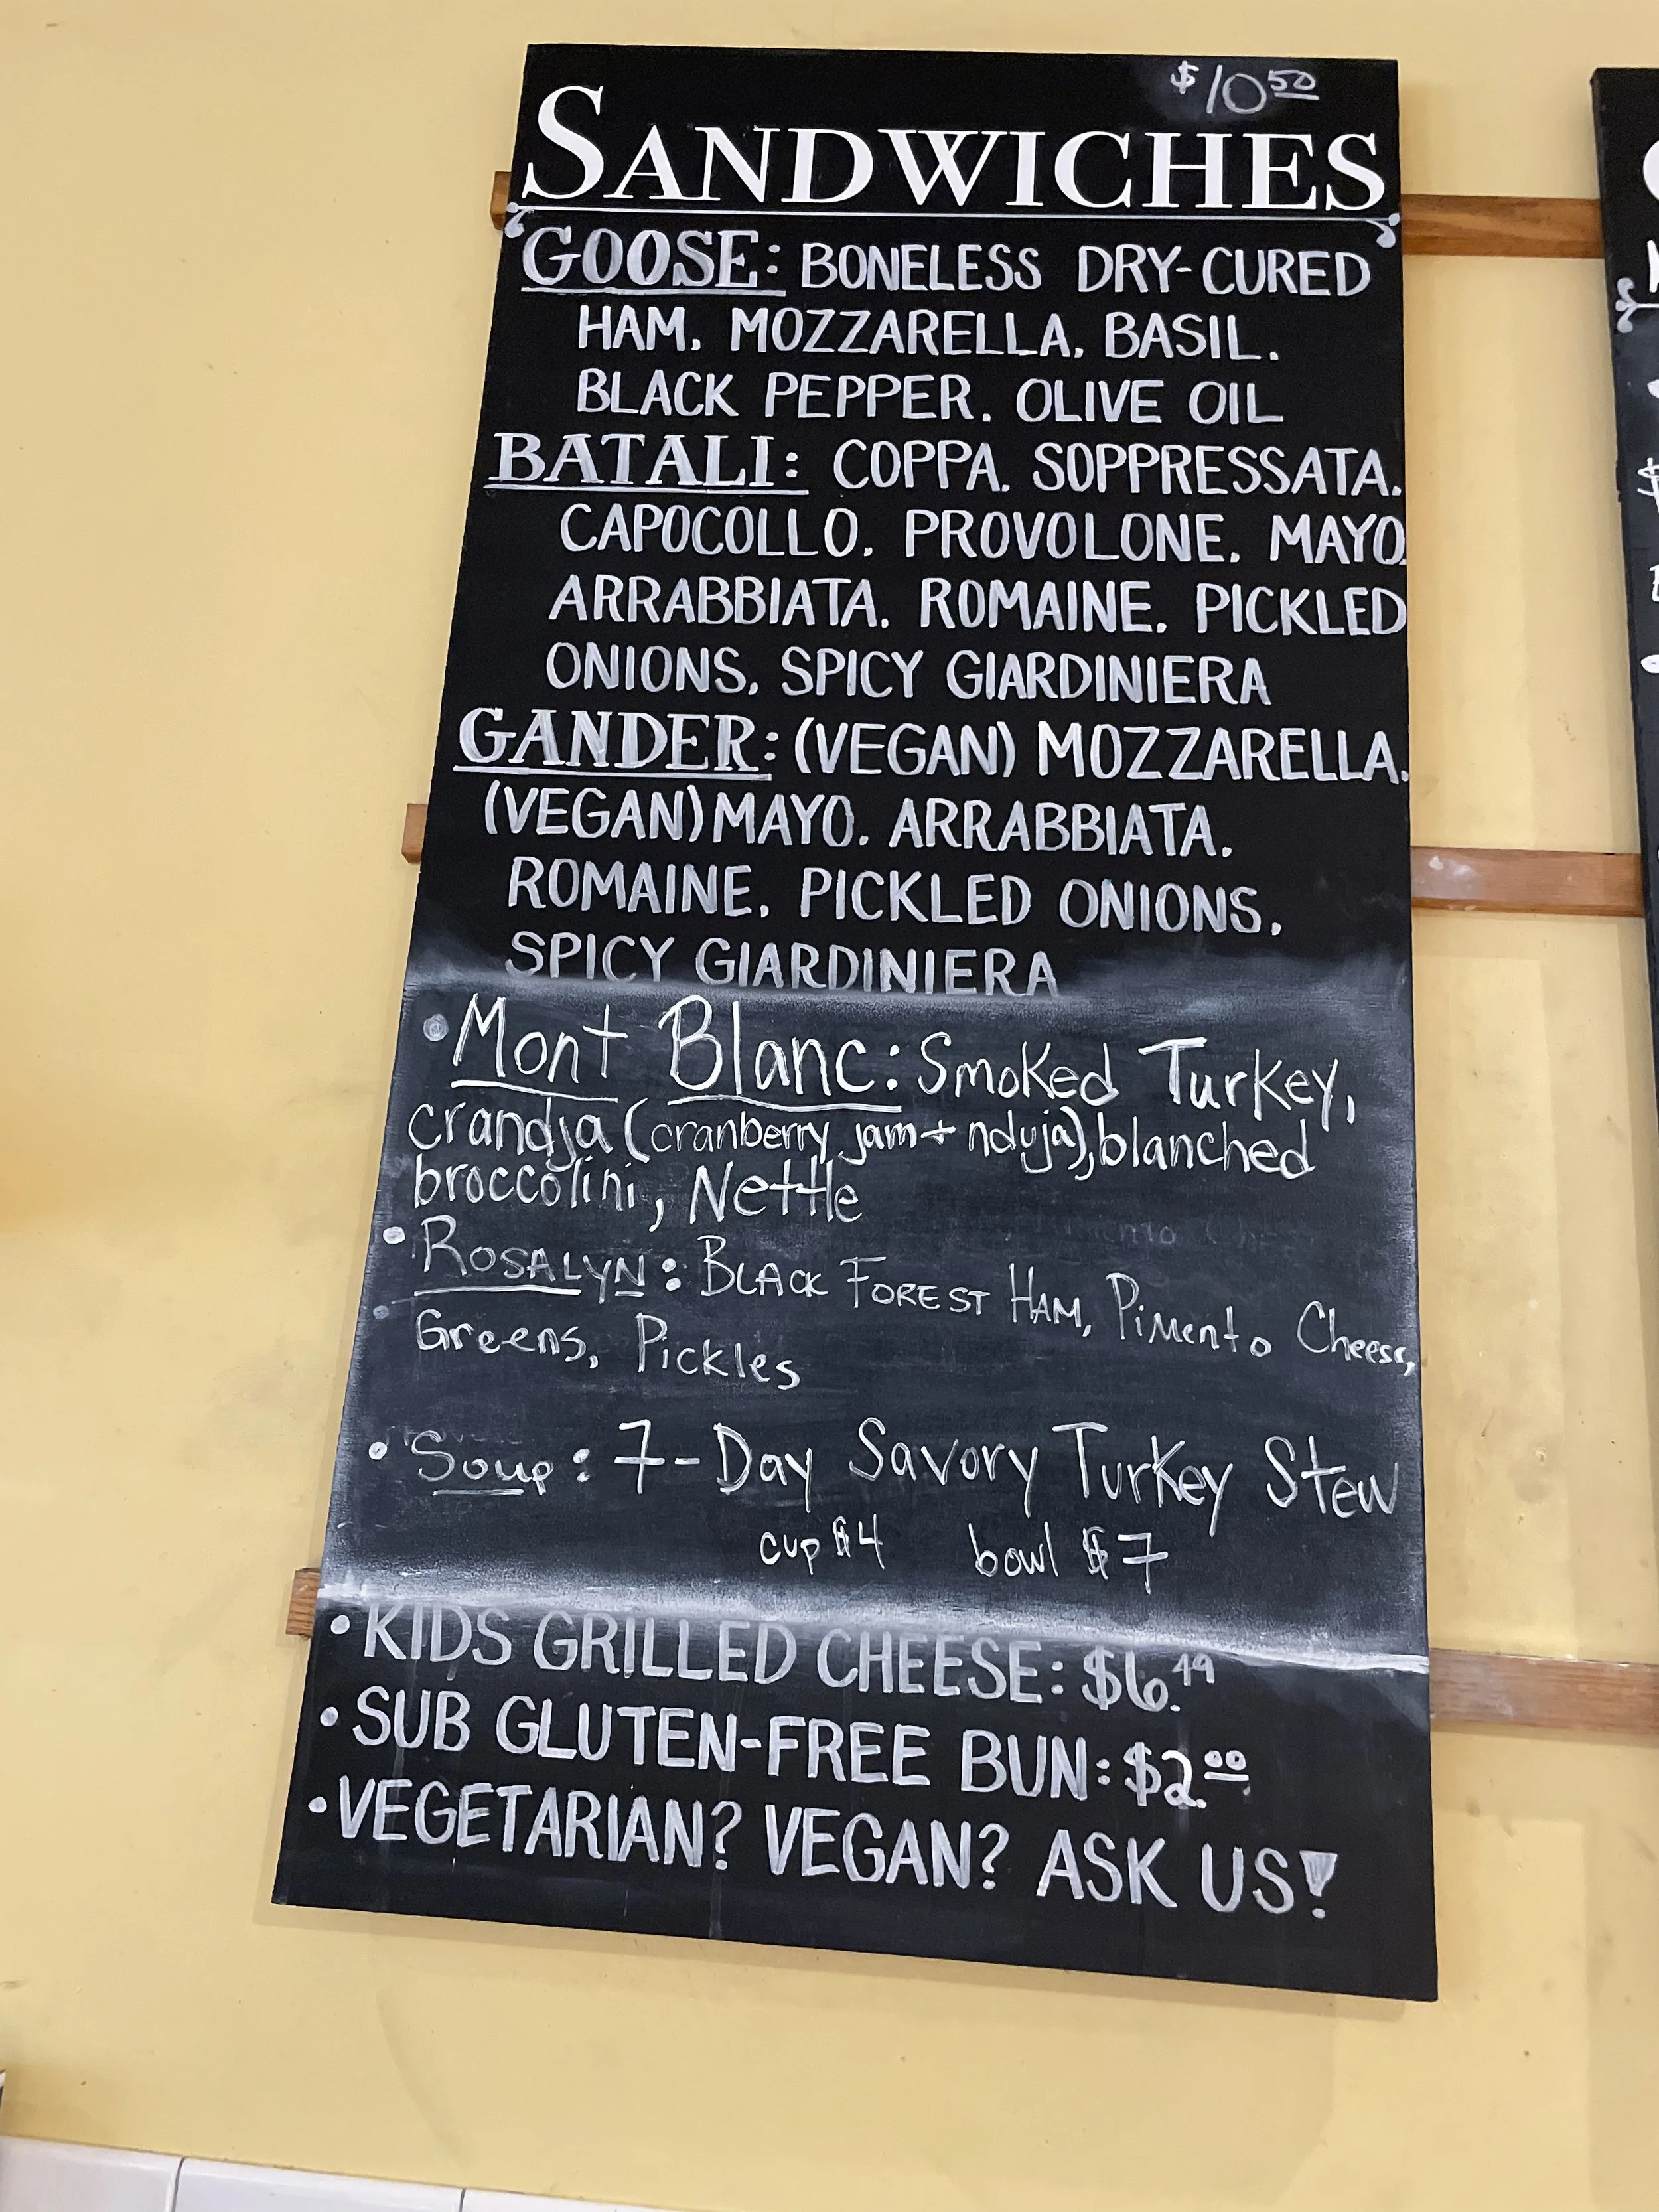 $10.50
SANDWICHES
GOOSE: BONELESS DRY-CURED
HAM. MOZZARELLA. BASIL.
BLACK PEPPER. OLIVE OIL
BATALI: COPPA. SOPPRESSATA.
CAPOCOLLO. PROVOLONE. MAYO.
ARRABBIATA. ROMAINE. PICKLED
ONIONS. SPICY GIARDINIERA
GANDER: (VEGAN) MOZZARELLA.
(VEGAN) MAYO. ARRABBIATA.
ROMAINE. PICKLED ONIONS.
SPICY GIARDINIERA
• Mont Blanc: Smoked Turkey,
crandja (cranberry jam + nduja), blanched
broccolini, Nettle
• ROSALYN: BLACK FOREST HAM, Pimento Cheese,
Greens, Pickles
• Soup: 7-Day Savory Turkey Stew
cup $4 bowl $7
• KIDS GRILLED CHEESE: $6.49
• SUB GLUTEN-FREE BUN: $2.00
• VEGETARIAN? VEGAN? ASK US!